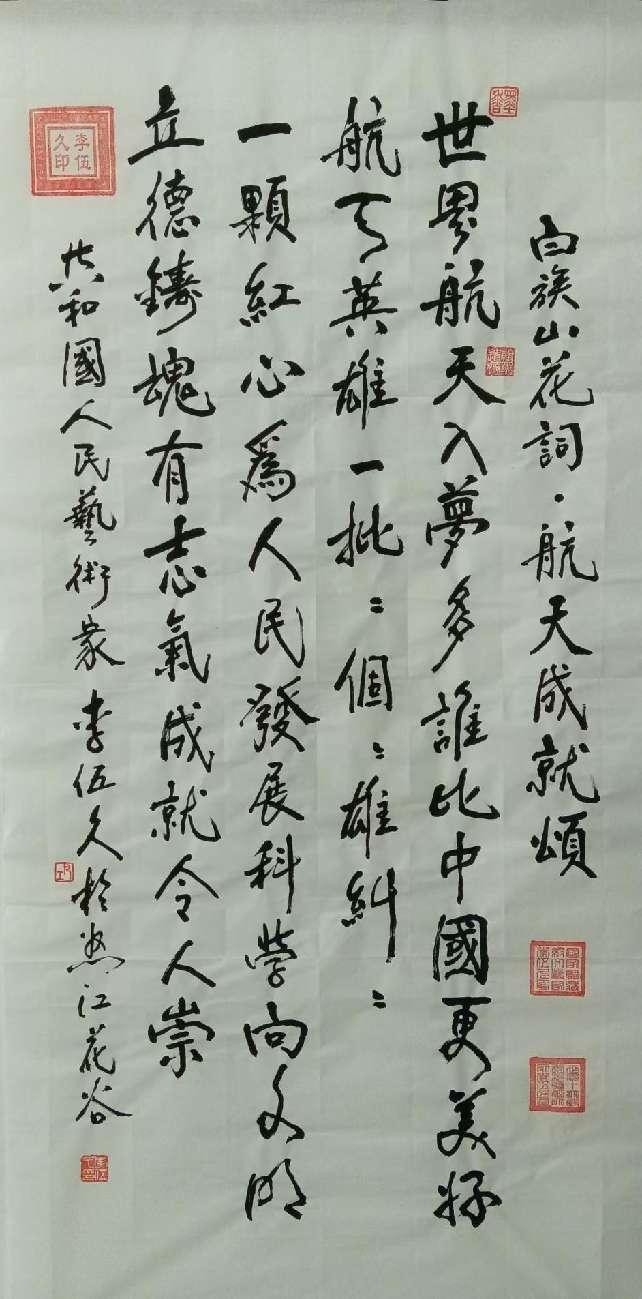 白族山花詞·航天成就頌
世界航天入夢多誰比中國更美好
航天英雄一批〻個〻雄糾〻
一顆紅心為人民發展科學向文明
立德鑄魂有志氣成就令人崇
共和國人民藝術家李伍久於怒江花谷
李伍久印